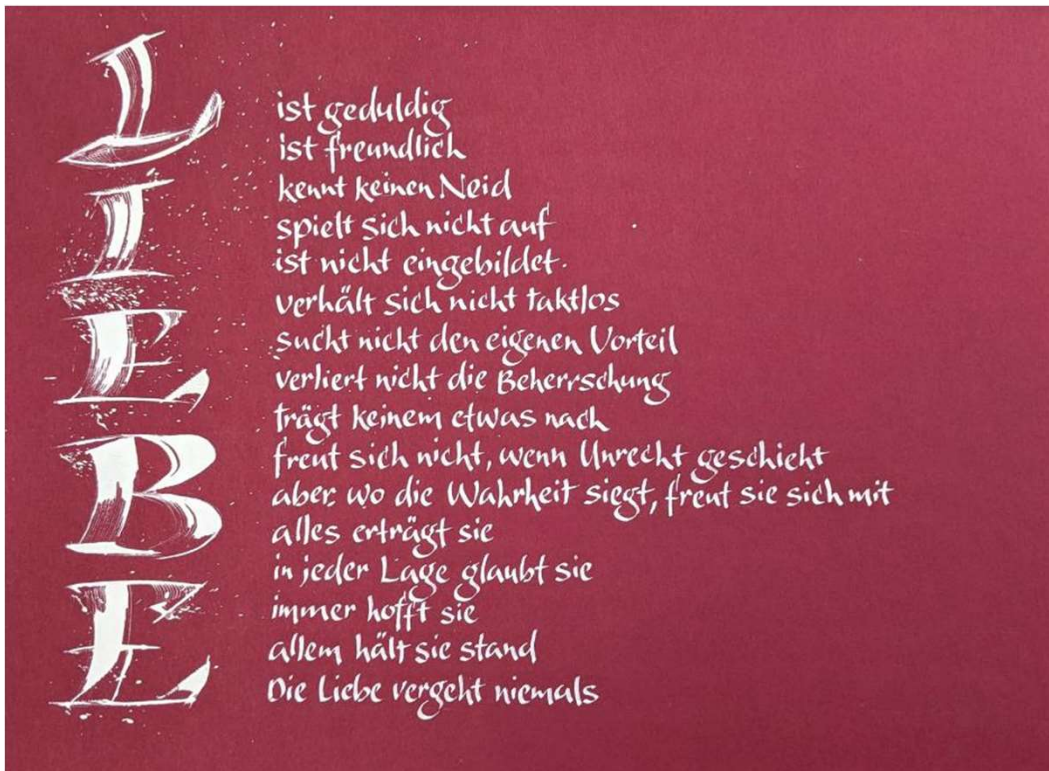 LIEBE
ist geduldig
ist freundlich
kennt keinen Neid
spielt sich nicht auf
ist nicht eingebildet.
verhält sich nicht taktlos
sucht nicht den eigenen Vorteil
verliert nicht die Beherrschung
trägt keinem etwas nach
freut sich nicht, wenn Unrecht geschieht
aber, wo die Wahrheit siegt, freut sie sich mit
alles erträgt sie
in jeder Lage glaubt sie
immer hofft sie
allem hält sie stand
Die Liebe vergeht niemals